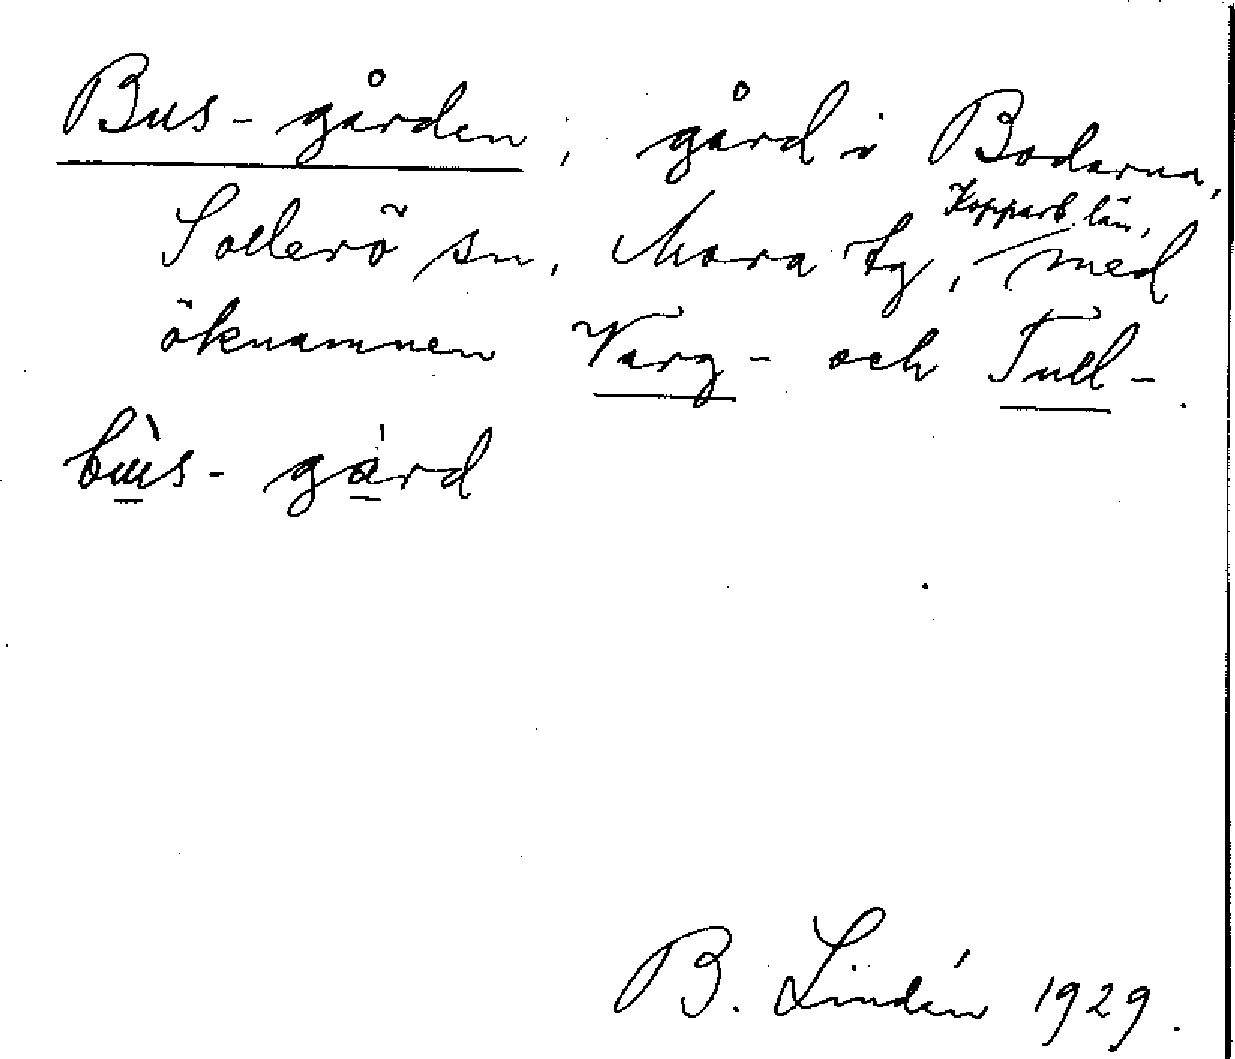 Bus-gården; gård i Bodarna,
Sollerö sn, Mora tg, Kopparb. län, med
öknamnen Varg- och Tull-
bùs- gård
B. Lindén 1929.